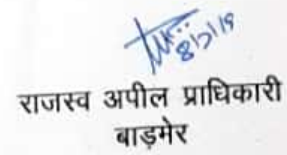 8/2/19
राजस्व अपील प्राधिकारी
बाड़मेर